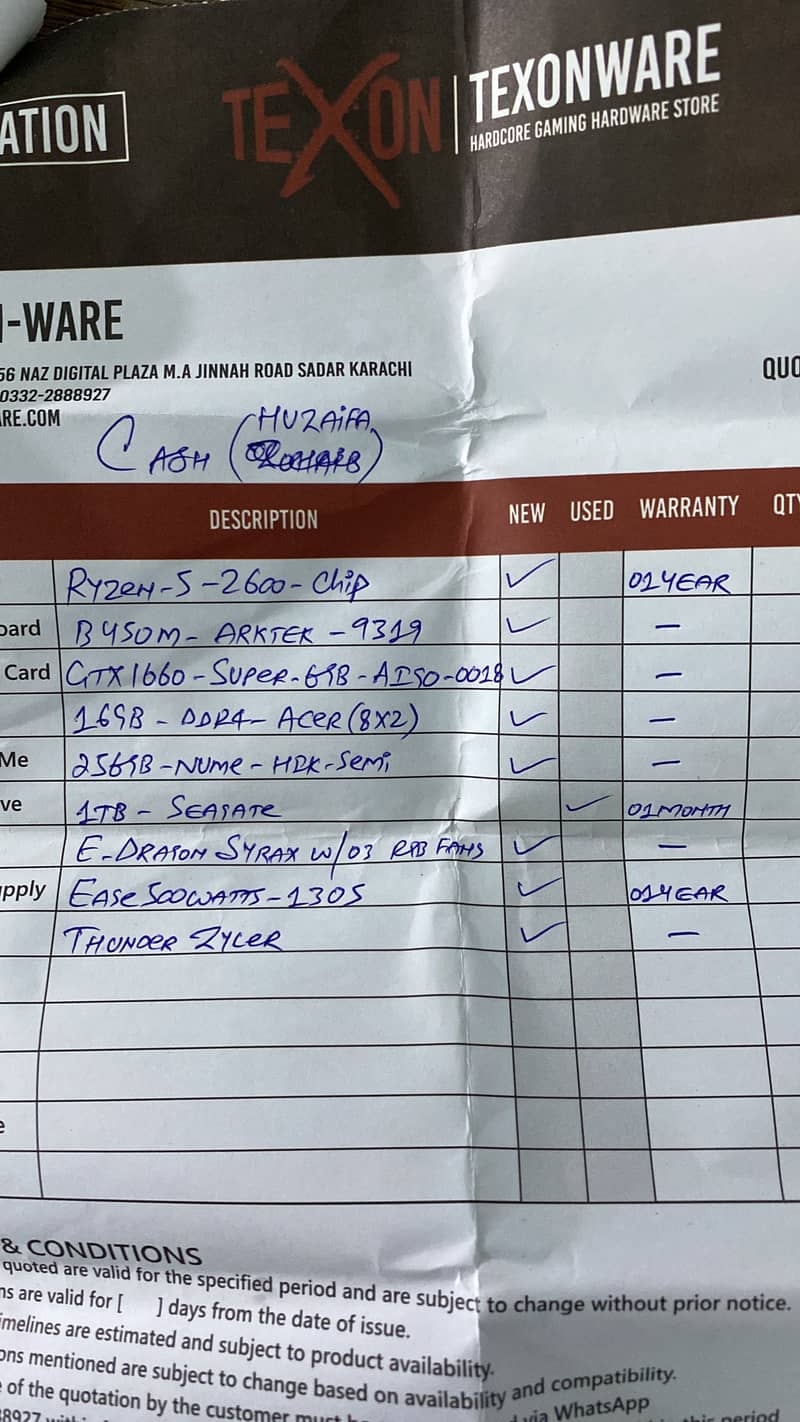 ATION
TEXON | TEXONWARE
HARDCORE GAMING HARDWARE STORE
-WARE
56 NAZ DIGITAL PLAZA M.A JINNAH ROAD SADAR KARACHI
QUO
0332-2888927
RE.COM
CASH (MUZAiFA)
DESCRIPTION NEW USED WARRANTY QTY
RYZEN-5-2600-Chip ✓ 01YEAR
oard B450M-ARKTEK-9319 ✓ —
Card GTX1660-SUPER-6GB-AISO-0018 ✓ —
16GB-DDR4-ACER(8X2) ✓ —
Me 256GB-NVMe-HIK-Semi ✓ —
ve 1TB-SEAGATE ✓ 01MONTH
E-DRAGON SYRAX W/03 RGB FANS ✓ —
upply EASE 500WATTS-130S ✓ 01YEAR
THUNDER ZYLER ✓ —
e
& CONDITIONS
quoted are valid for the specified period and are subject to change without prior notice.
ns are valid for [ ] days from the date of issue.
imelines are estimated and subject to product availability.
ons mentioned are subject to change based on availability and compatibility.
of the quotation by the customer must
via WhatsApp
period